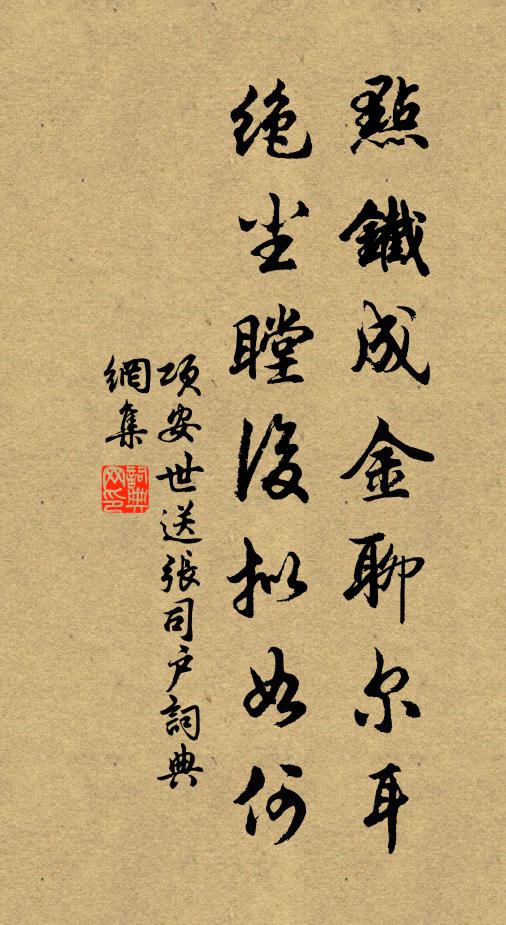 點鐵成金聊尔耳
絶尘瞠後拟如何
项安世送張司户詞典
網集
詞典
网印